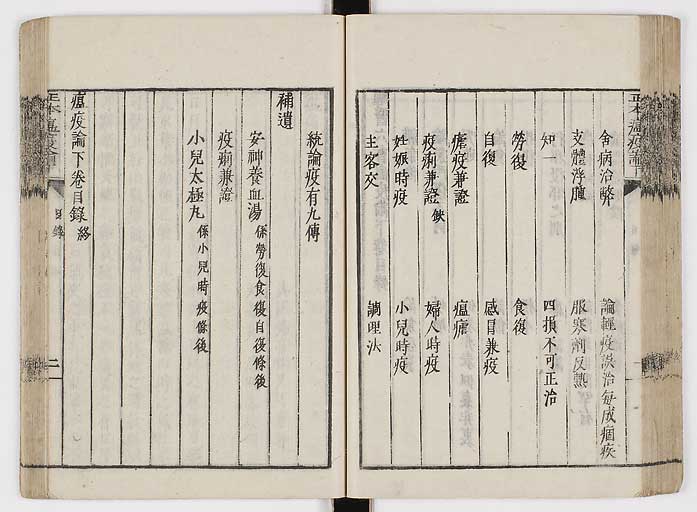 舍病治弊
論輕疫誤治每成痼疾
支體浮腫
服寒劑反熱
知一
四損不可正治
勞復
食復
自復
感冒兼疫
瘧疫兼證
瘟瘧
疫痢兼證 缺
婦人時疫
妊娠時疫
小兒時疫
主客交
調理法
統論疫有九傳
補遺
安神養血湯 係勞復食復自復條後
疫痢兼證
小兒太極丸 係小兒時疫條後
瘟疫論下卷目錄 終
目錄
二